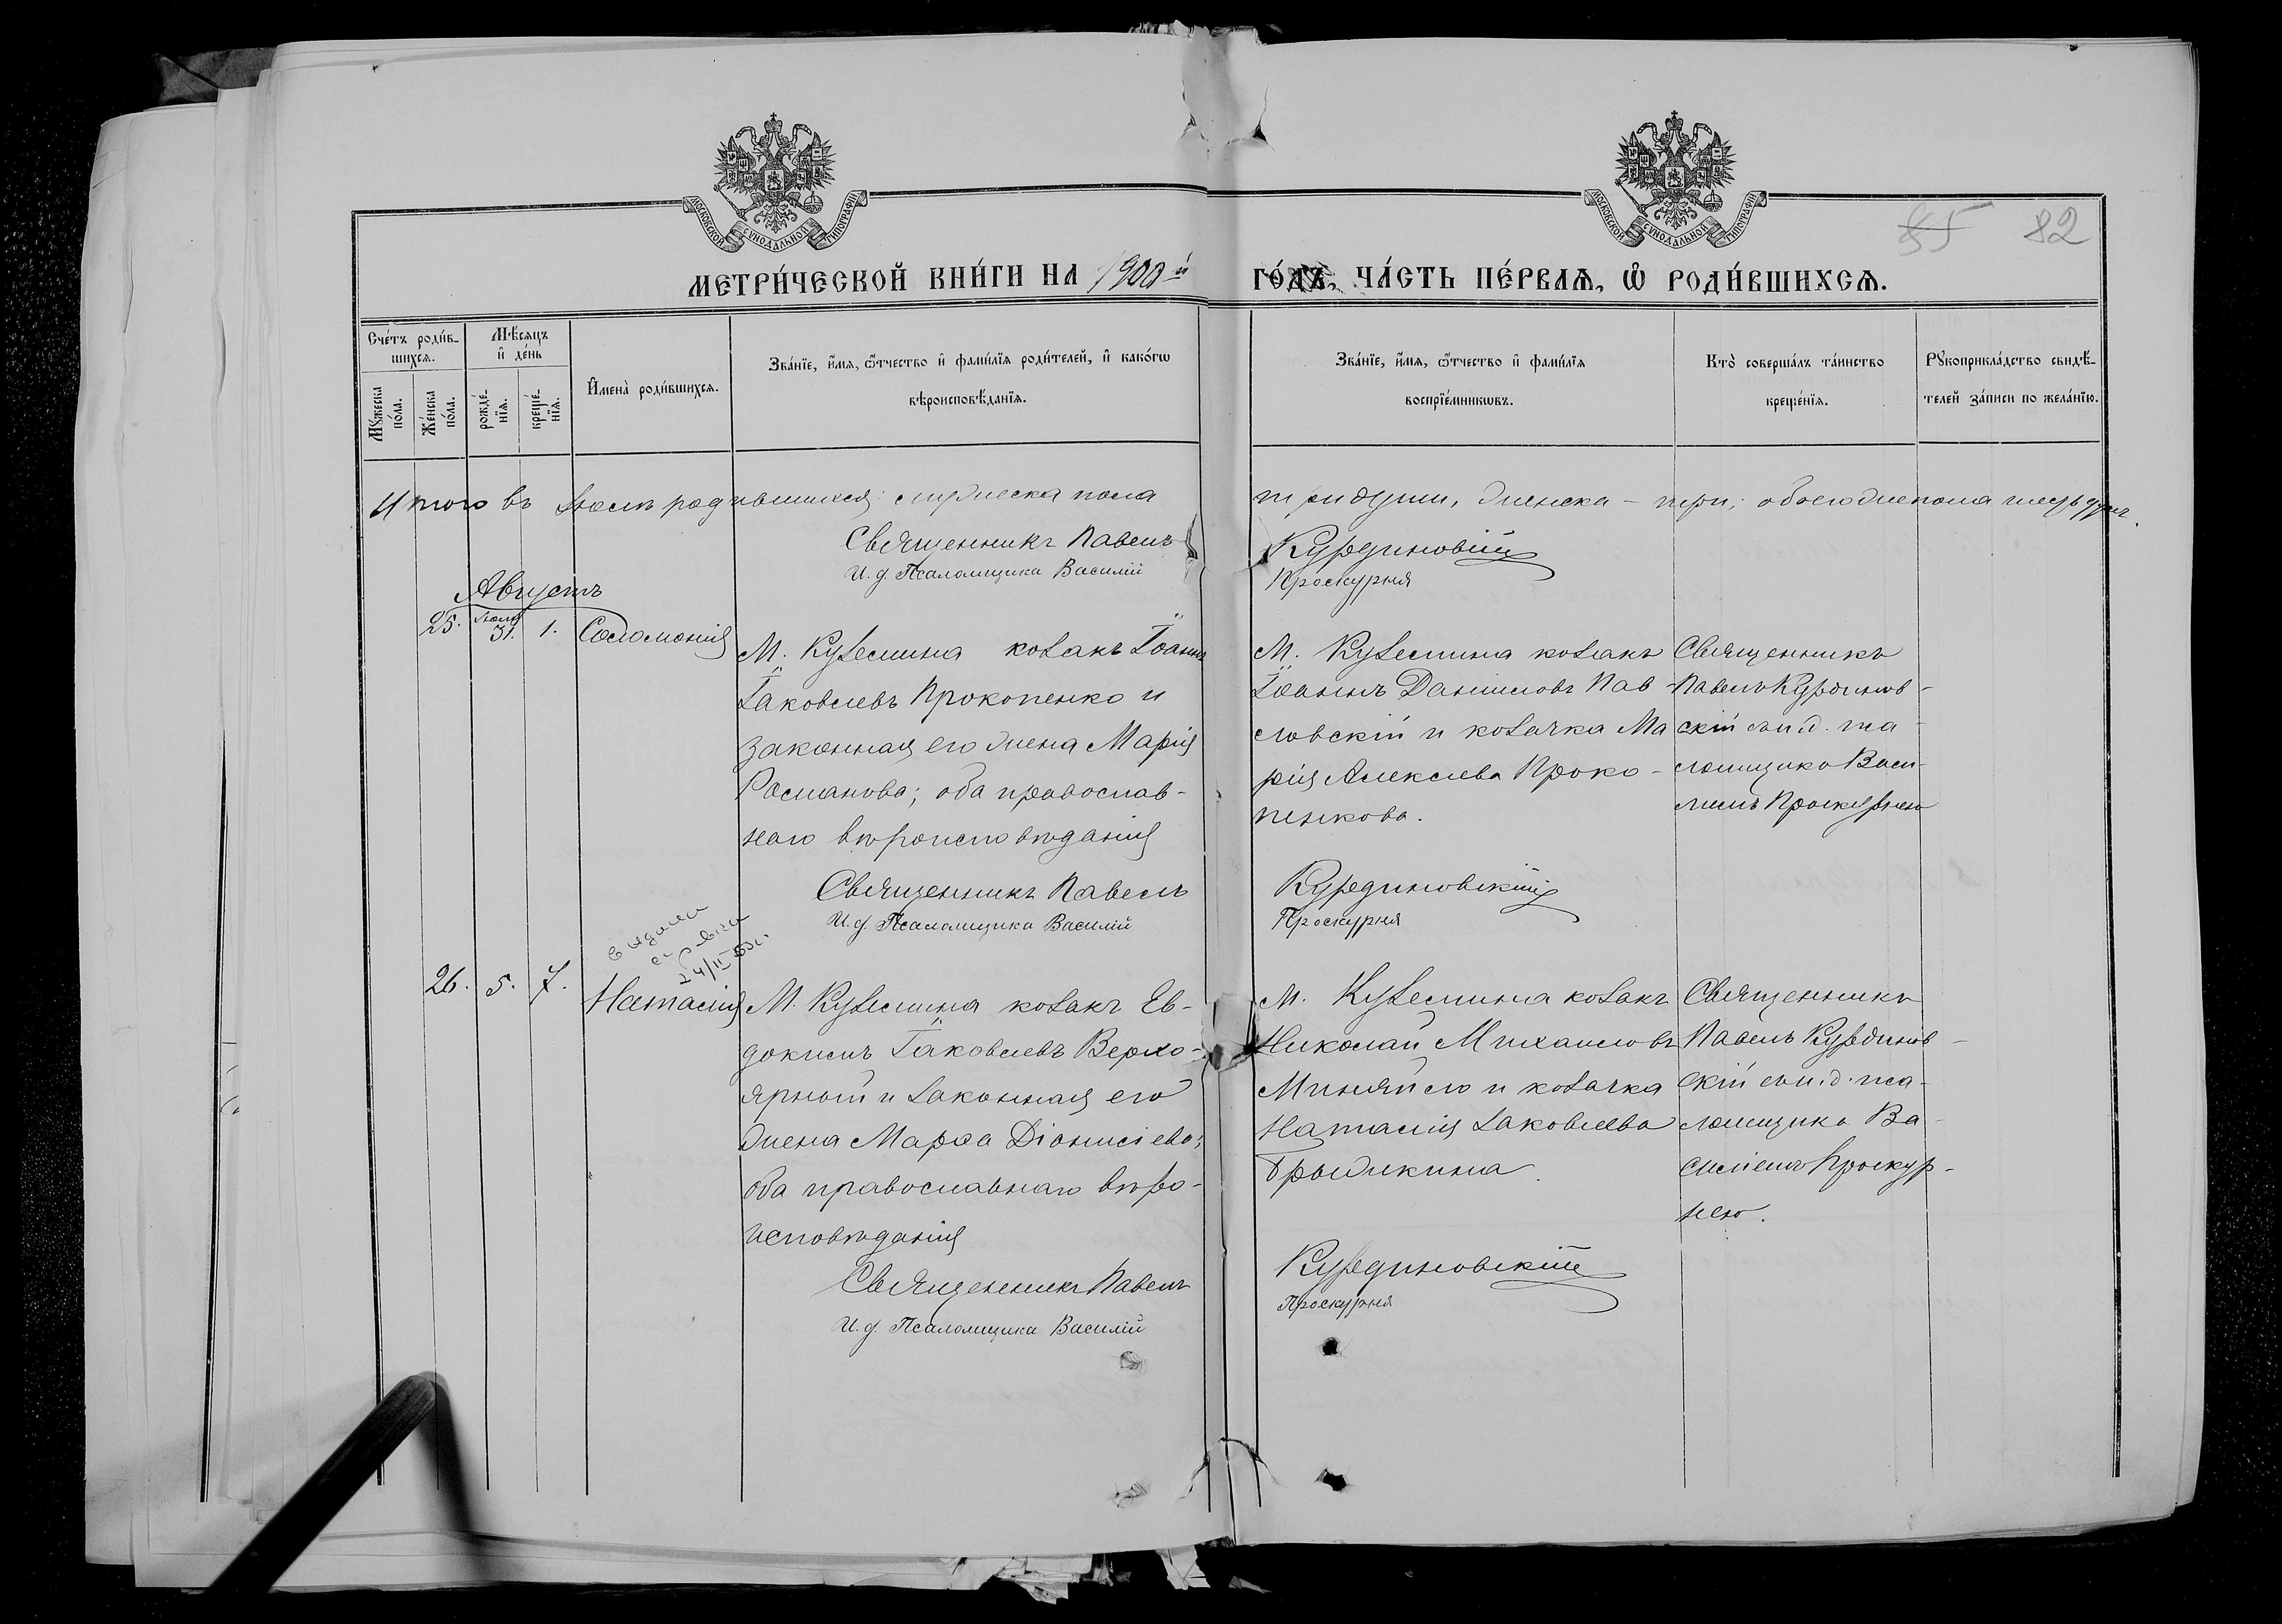 МОСКОВСКОЙ СѴНОДАЛЬНОЙ ТИПОГРАФІИ
МОСКОВСКОЙ СѴНОДАЛЬНОЙ ТИПОГРАФІИ
85 82
МЕТРИ́ЧЕСКОЙ КНИ́ГИ НА 1900й ГО́ДЪ, ЧА́СТЬ ПЕ́РВАѦ, Ѡ҆ РОДИ́ВШИХСѦ.
Сче́тъ роди́в-
шихсѧ.
Мꙋ́жеска
по́ла.
Же́нска
по́ла.
Мѣ́сѧцъ
и҆ де́нь
рожде́-
нїѧ.
креще́-
нїѧ.
И҆мена̀ роди́вшихсѧ.
Зва́нїе, и҆́мѧ, ѻ҆́тчество и҆ фами́лїѧ роди́телей, и҆ како́гѡ
вѣроисповѣ́данїѧ.
Зва́нїе, и҆́мѧ, ѻ҆́тчество и҆ фами́лїѧ
воспрїе́мникѡвъ.
Кто̀ соверша́лъ та́инство
креще́нїѧ.
Рꙋкоприкла́дство свидѣ́-
телей за́писи по жела́нїю.
Итого въ Іюлѣ родившихся: мужеска пола три души, женска - три; обоего же пола шесть душ.
Священникъ Павелъ Курдиновскій
И. д. Псаломщика Василій Проскурня
Августъ
25. Іюля 31. 1. Соломонія
М. Куземина козакъ Іоаннъ
Іаковлевъ Прокопенко и
законная его жена Марія
Романова; оба православ-
наго вѣроисповѣданія
М. Куземина козакъ
Іоаннъ Даниловъ Пав-
ловскій и козачка Ма
рія Алексѣева Проко-
пенкова.
Священникъ
Павелъ Курдинов-
скій съ и. д. пса-
ломщика Васи-
ліемъ Проскурнею
Священникъ Павелъ Курдиновскій
И. д. Псаломщика Василій Проскурня
выдана
справка
24/II
26. 5. 7. Наталія
М. Куземина козакъ Ев-
докимъ Іаковлевъ Верхо-
ярный и законная его
жена Марѳа Діонисіева;
оба православнаго вѣро-
исповѣданія
М. Куземина козакъ
Николай Михаиловъ
Миняйло и козачка
Наталія Іаковлева
Священникъ
Павелъ Курдинов-
скій съ и. д. пса-
ломщика Ва-
силіемъ Проскур-
нею.
Священникъ Павелъ Курдиновскій
И. д. Псаломщика Василій Проскурня